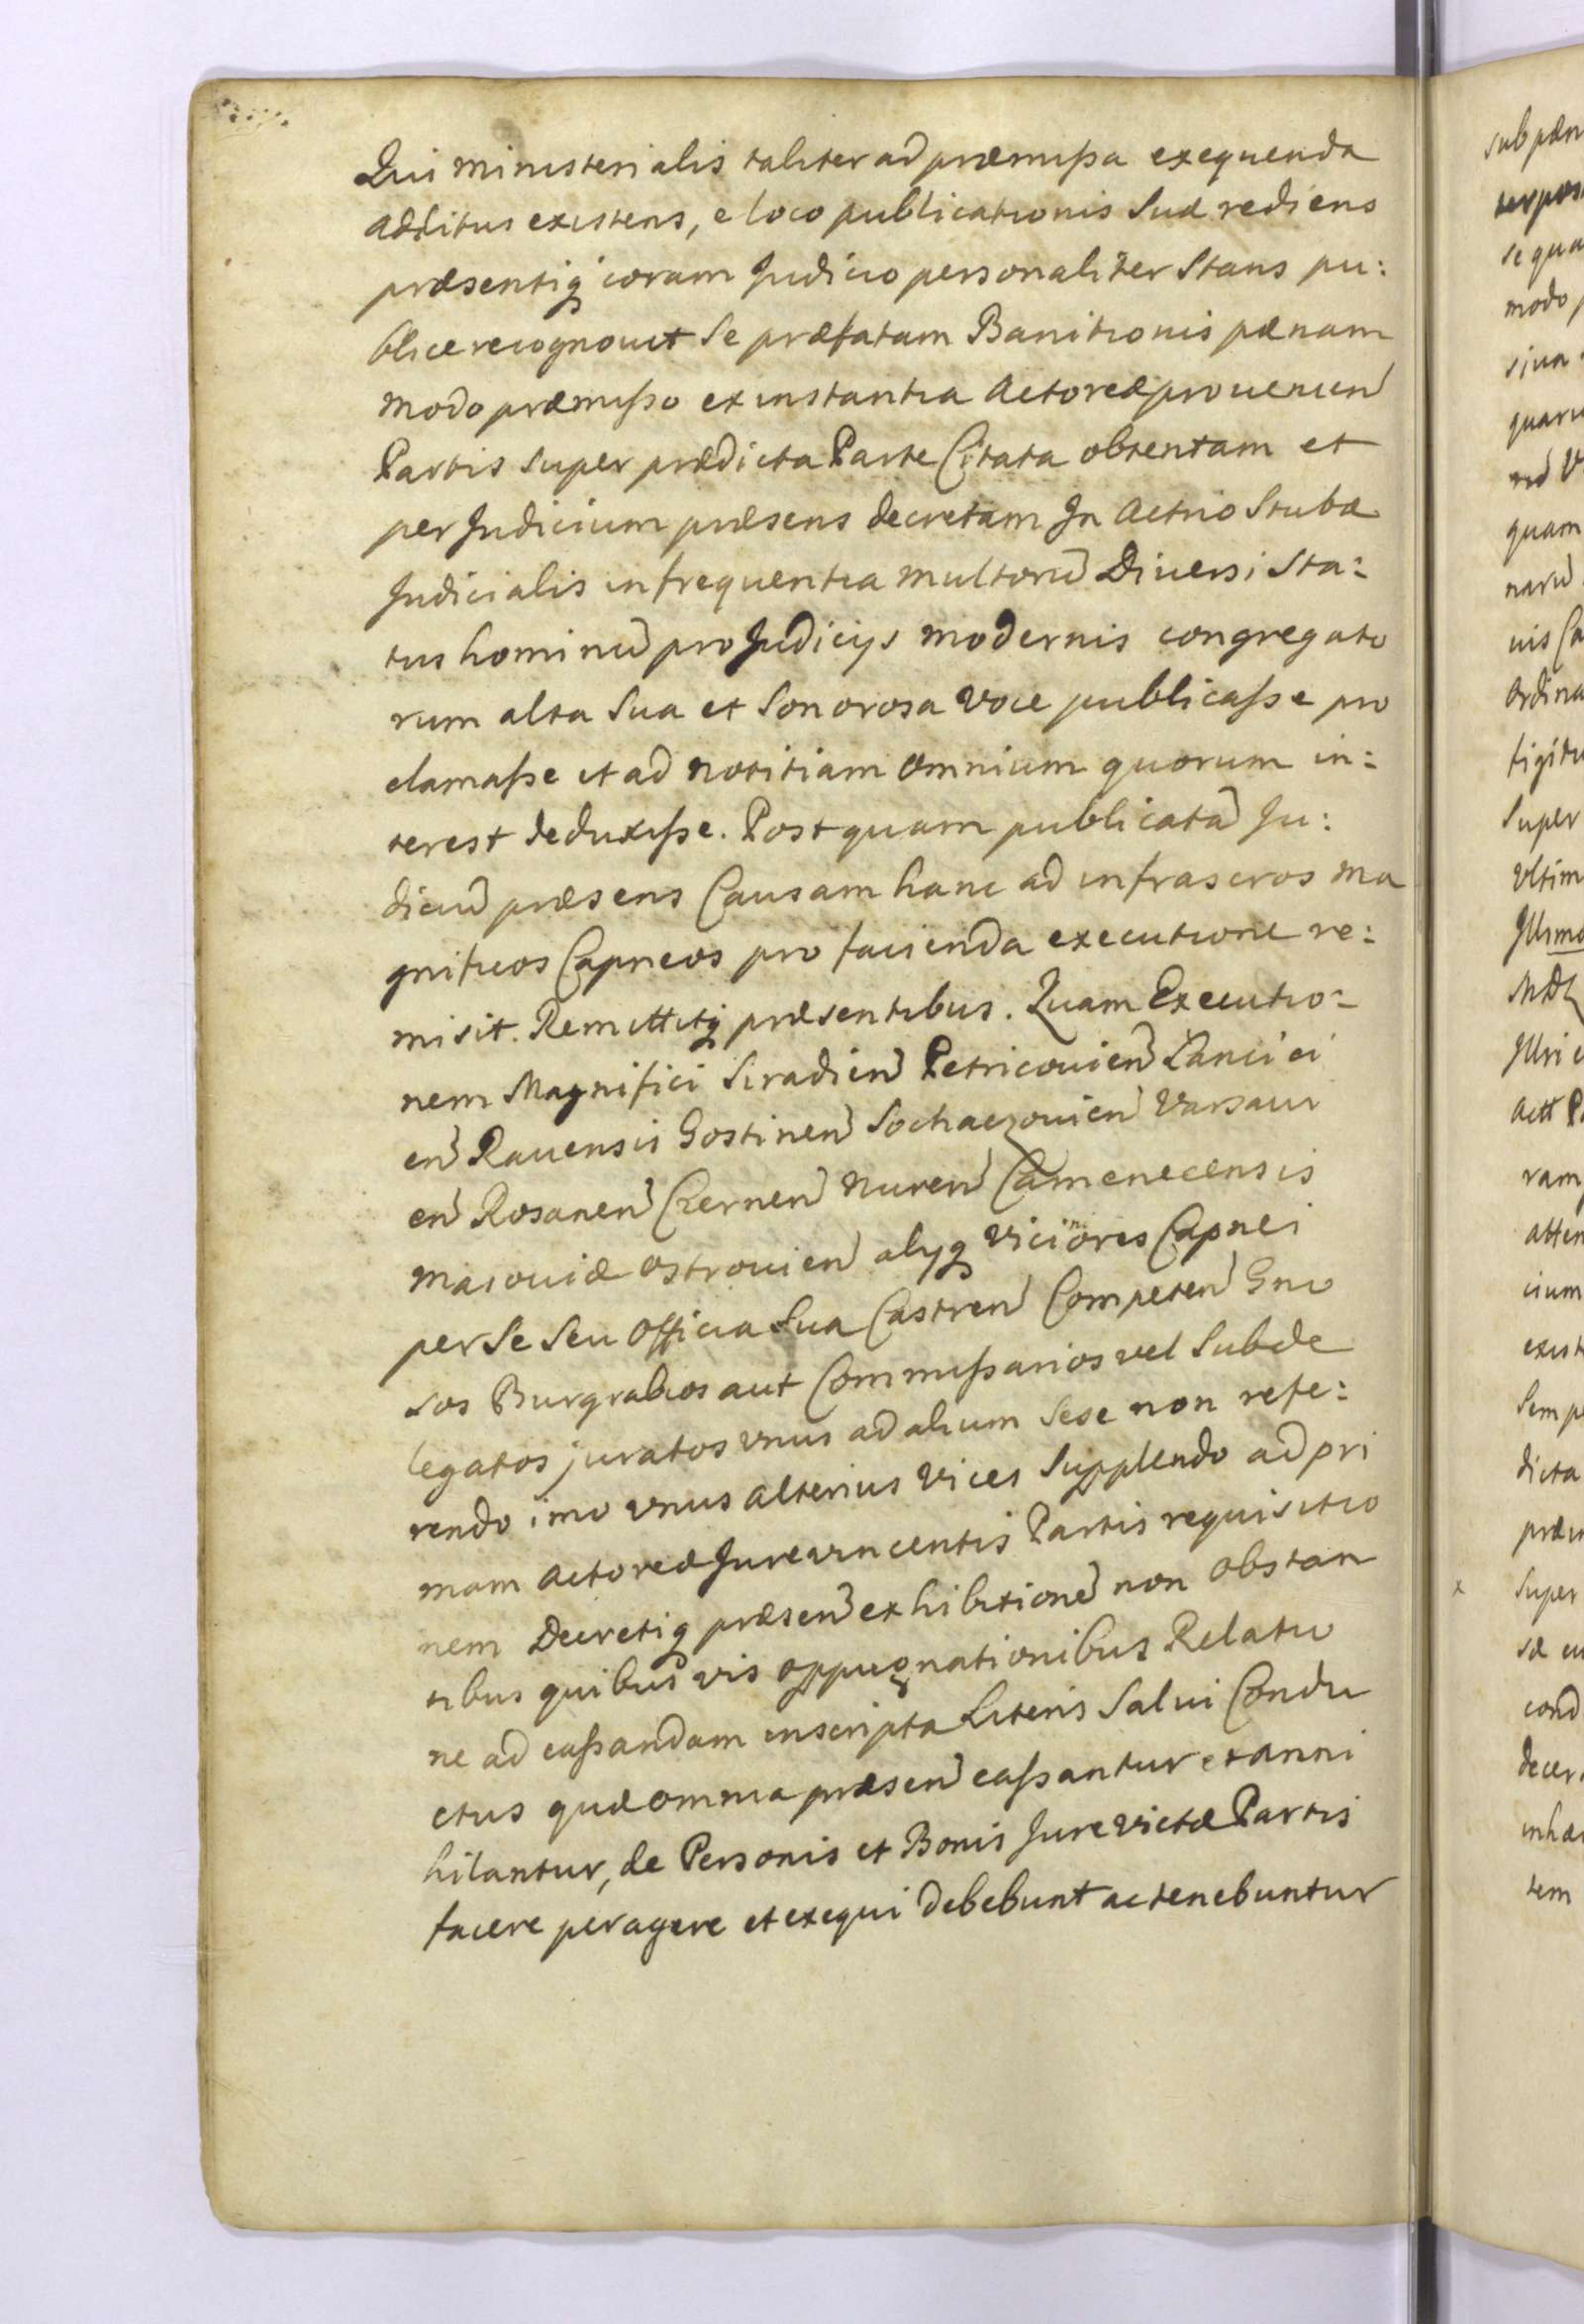 Qui ministerialis taliter ad præmissa exequenda
additus existens, e loco publicationis Suæ rediens
præsentiq coram Judicio personaliter Stans pu:
blice recognouit Se præfatam Banitionis pænam
modo præmisso ex instantia Actoreæ prouenien
Partis Super prædicta Parte Citata obtentam et
per Judicium præsens decretam In Actrio Stubæ
Judicialis in frequentia multorū Diuersi Sta:
tus hominū pro Judicijs modernis congregato
rum alta Sua et Sonorosa voce publicasse pro
clamasse et ad notitiam omnium quorum in:
terest deduxisse. Post quam publicatā Ju:
diciū præsens Causam hanc ad infrascros Ma
gnificos Capneos pro facienda executione re:
misit. Remittitq præsentibus. Quam Executio:
nem Magnifici Siradien Petricouien Lancici
en Rauensis Gostinen Sochaczouien Varsaui
en Rosanen Czernen Nuren Camenecensis
Masouiæ Ostrouien alijq viciniores Capnei
per Se Seu Officia Sua Castren Competen Gno
sos Burgrabios aut Commissarios vel Subde
legatos juratos vnus ad alium Sese non refe:
rendo imo vnus alterius vices Supplendo ad pri
mam actoreæ Jurevincentis Partis requisitio
nem Decretiq præsen exhibitionē non obstan
tibus quibus vis oppugnationibus Relatio
ne ad cassandam inscripta Literis Salui Condu
ctus quæ omnia præsen cassantur et anni
hilantur, de Personis et Bonis Jurevictæ Partis
facere peragere et exequi debebunt ac tenebuntur